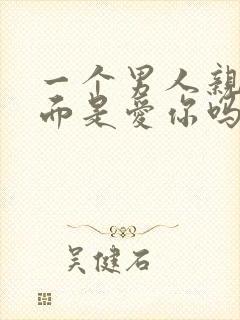 一个男人亲
而是爱你吗
吴健石